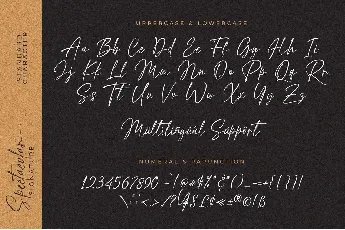 STANDARD
CHARACTER
Spectacular
SIGNATURE
UPPERCASE & LOWERCASE
Aa Bb Cc Dd Ee Ff Gg Hh Ii
Jj Kk Ll Mm Nn Oo Pp Qq Rr
Ss Tt Uu Vv Ww Xx Yy Zz
Multilingual Support
NUMERAL & PAPUNCTION
1234567890